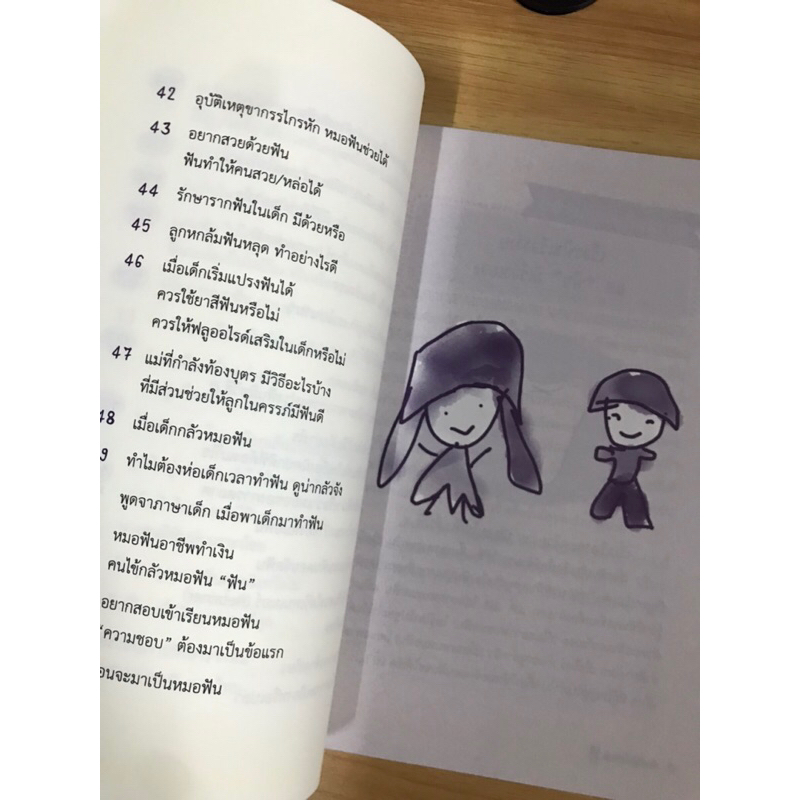 42 อุบัติเหตุขากรรไกรหัก หมอฟันช่วยได้
43 อยากสวยด้วยฟัน
ฟันทำให้คนสวย/หล่อได้
44 รักษารากฟันในเด็ก มีด้วยหรือ
45 ลูกหกล้มฟันหลุด ทำอย่างไรดี
46 เมื่อเด็กเริ่มแปรงฟันได้
ควรใช้ยาสีฟันหรือไม่
ควรให้ฟลูออไรด์เสริมในเด็กหรือไม่
47 แม่ที่กำลังท้องบุตร มีวิธีอะไรบ้าง
ที่มีส่วนช่วยให้ลูกในครรภ์มีฟันดี
48 เมื่อเด็กกลัวหมอฟัน
9 ทำไมต้องห่อเด็กเวลาทำฟัน ดูน่ากลัวจัง
พูดจาภาษาเด็ก เมื่อพาเด็กมาทำฟัน
หมอฟันอาชีพทำเงิน
คนไข้กลัวหมอฟัน “ฟัน”
อยากสอบเข้าเรียนหมอฟัน
“ความชอบ” ต้องมาเป็นข้อแรก
อนจะมาเป็นหมอฟัน